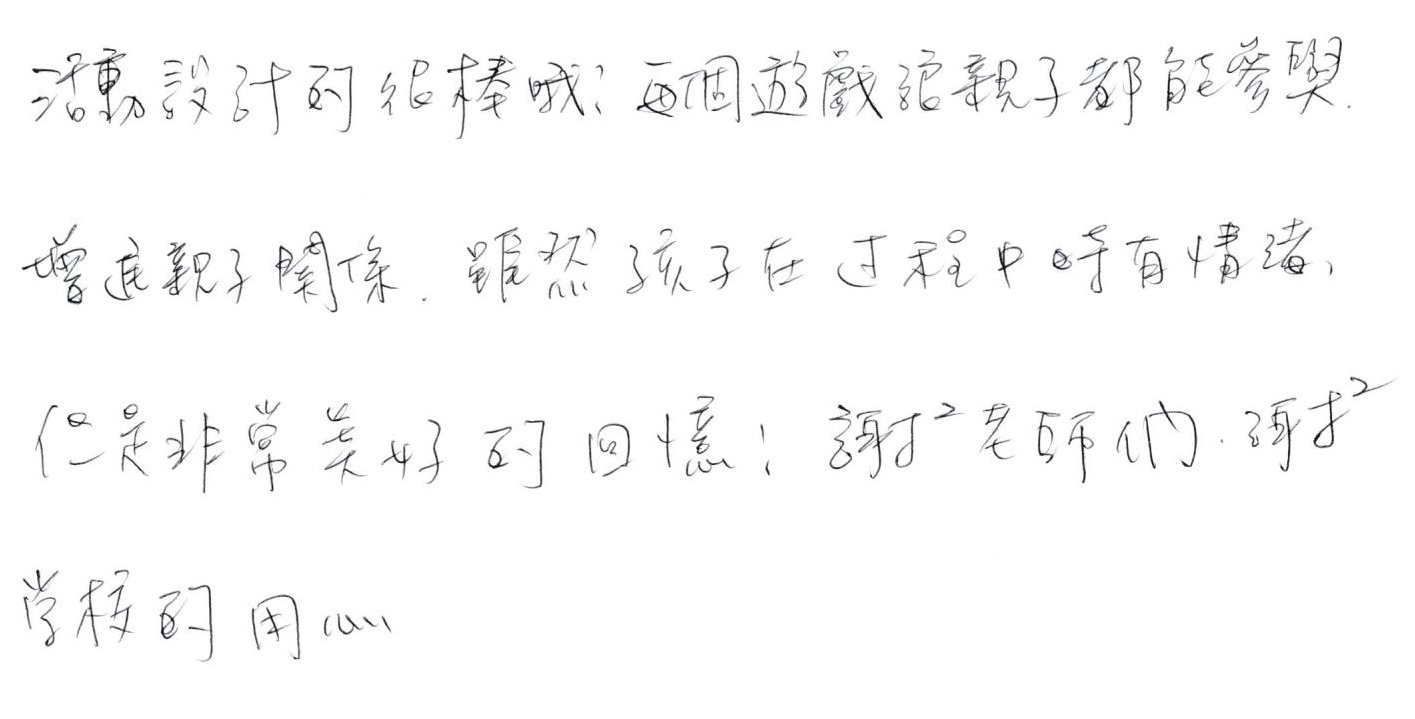 活動設計的很棒哦!每個遊戲讓親子都能參與.
增進親子關係.雖然孩子在过程中時有情緒,
但是非常美好的回憶!謝²老師們.謝²
学校的用心